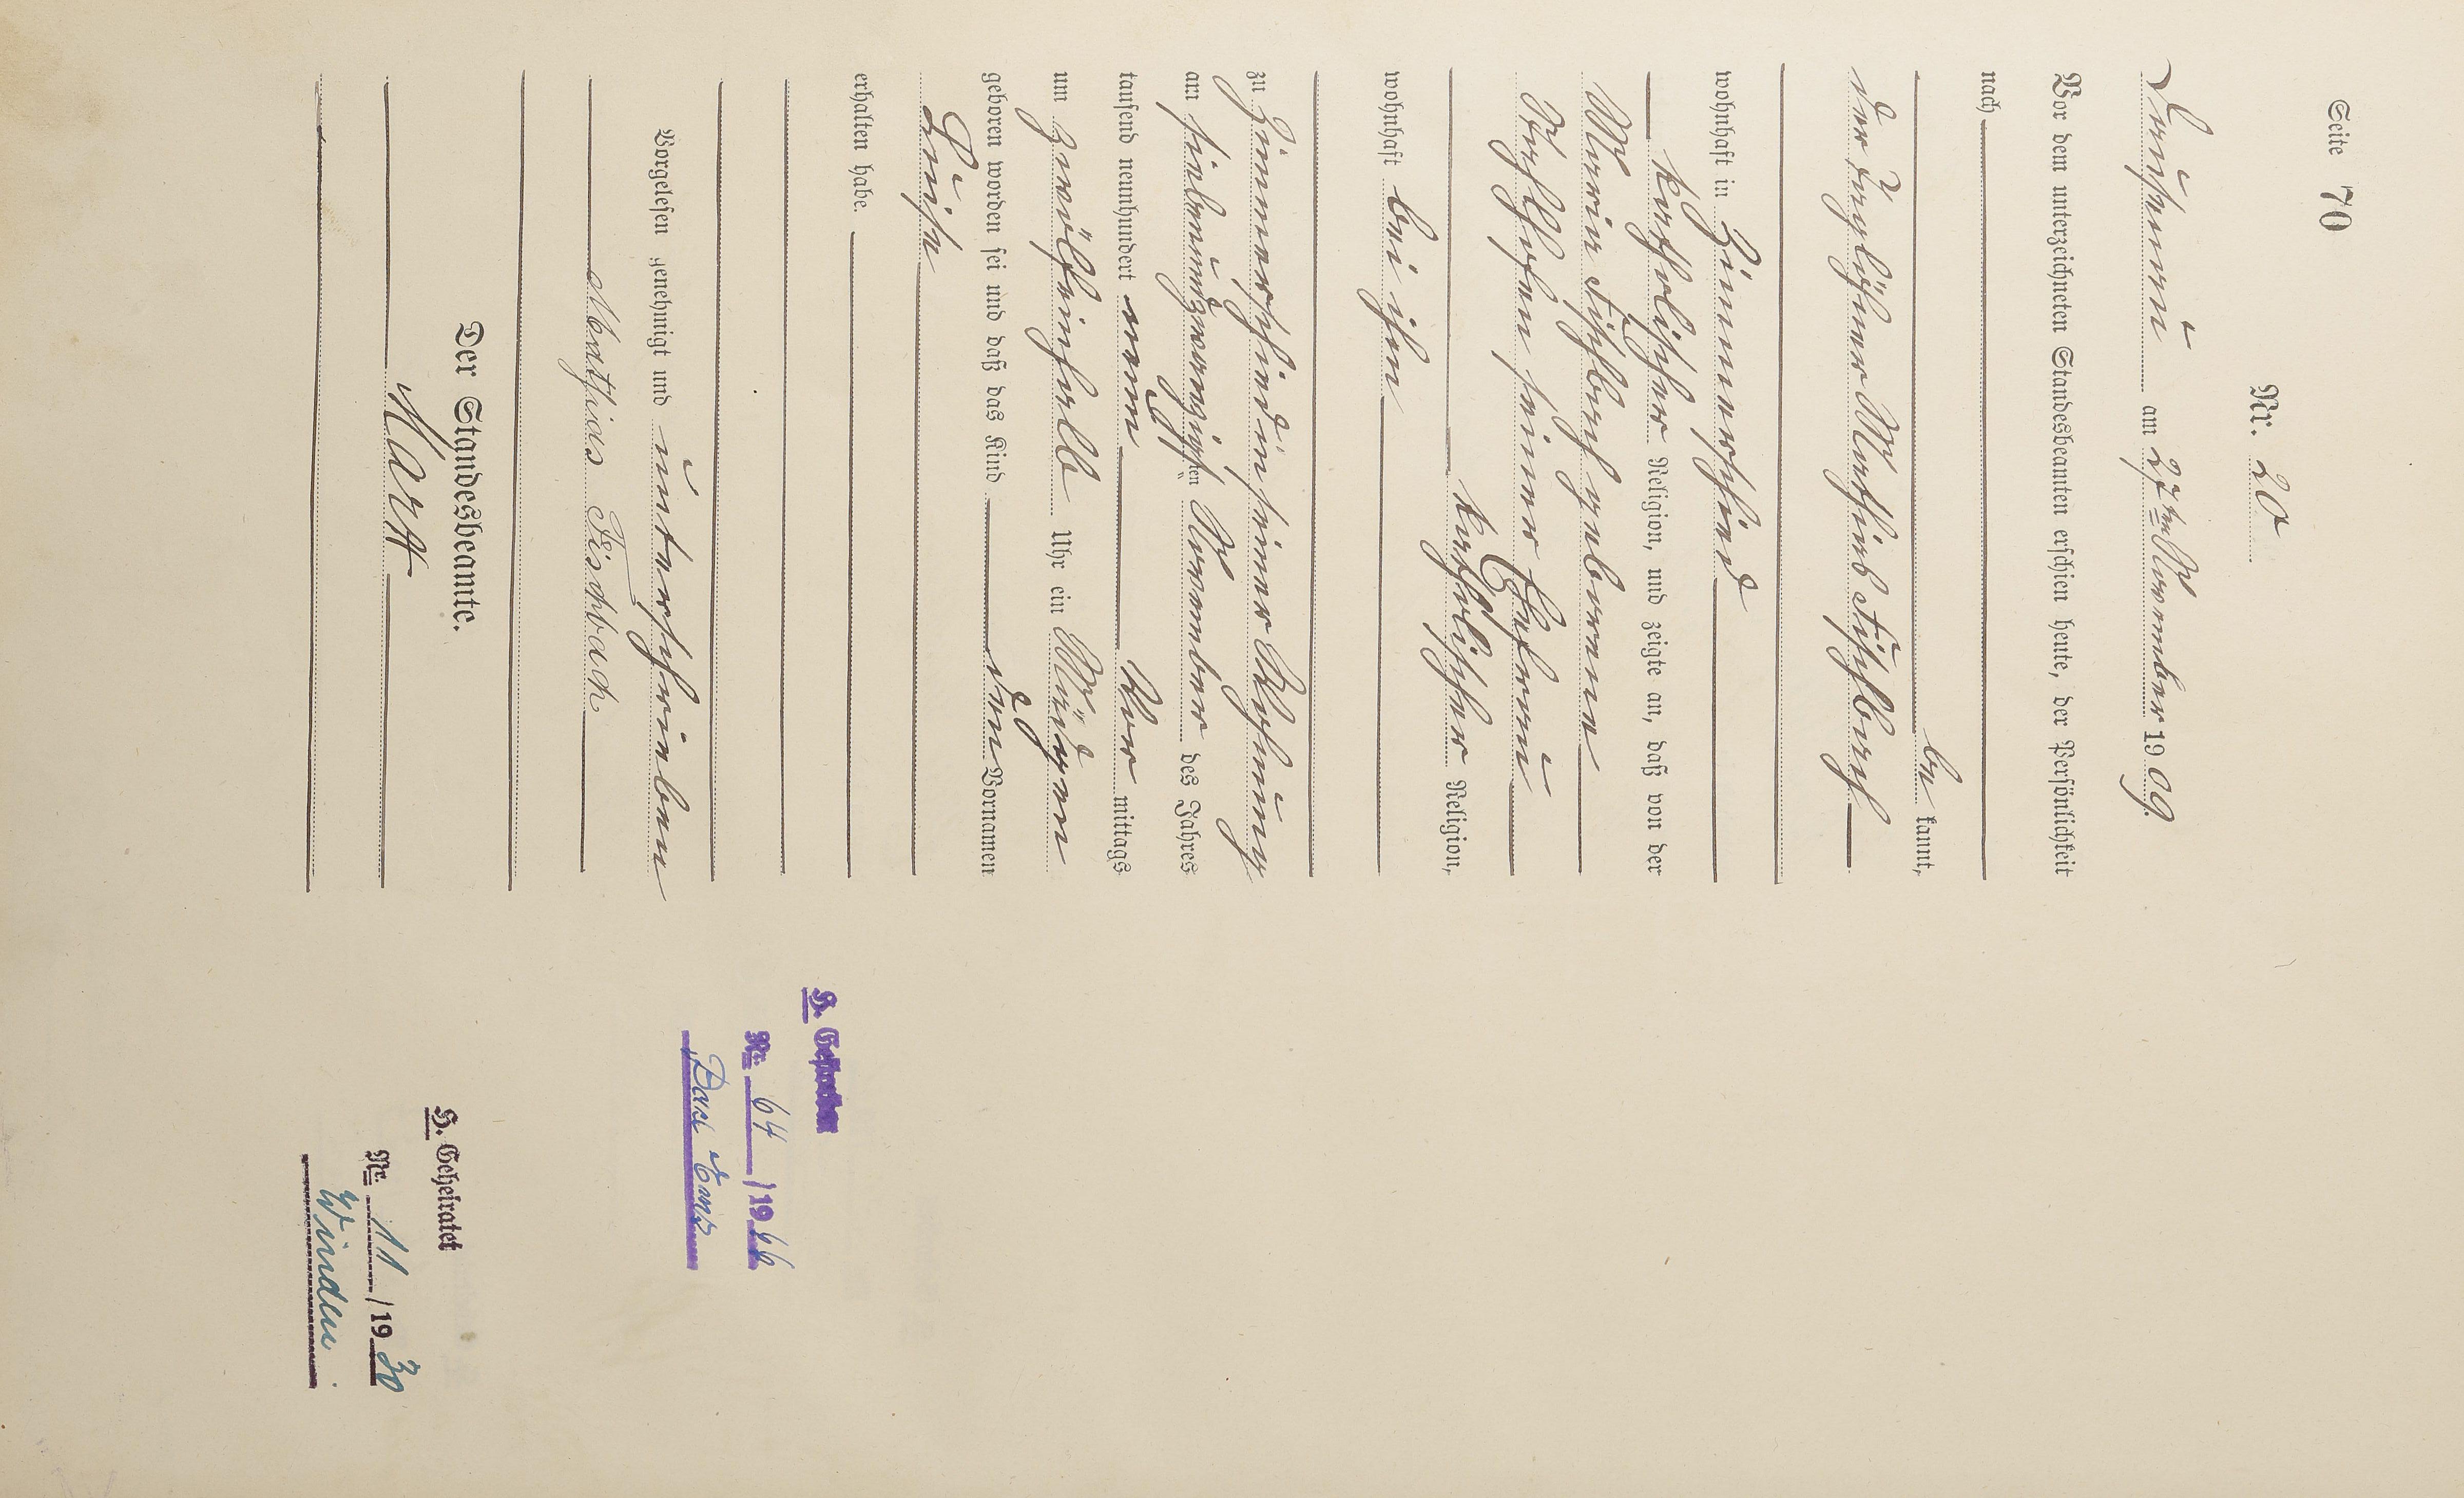 Seite 70
Nr. 20
am 27ten November 1909.
Vor dem unterzeichneten Standesbeamten erschien heute, der Persönlichkeit
nach
be kannt,
der Tagelöhner Mathias Fischbach
wohnhaft in Zimmerschied
katholischer Religion, und zeigte an, daß von der
Maria Fischbach geborene
seiner Ehefrau
katholischer Religion,
wohnhaft bei ihm
zu Zimmerschied in seiner Wohnung
am siebenundzwanzigsten November des Jahres
tausend neunhundert neun Vor mittags
um zwölfeinhalb Uhr ein Mädchen
geboren worden sei und daß das Kind den Vornamen
Luise
erhalten habe.
Vorgelesen genehmigt und unterschrieben
Mathias Fischbach
Der Standesbeamte.
Marx
H. Geheiratet
Nr. 64 /1966
H. Geheiratet
Nr. 11 /1930
Winden